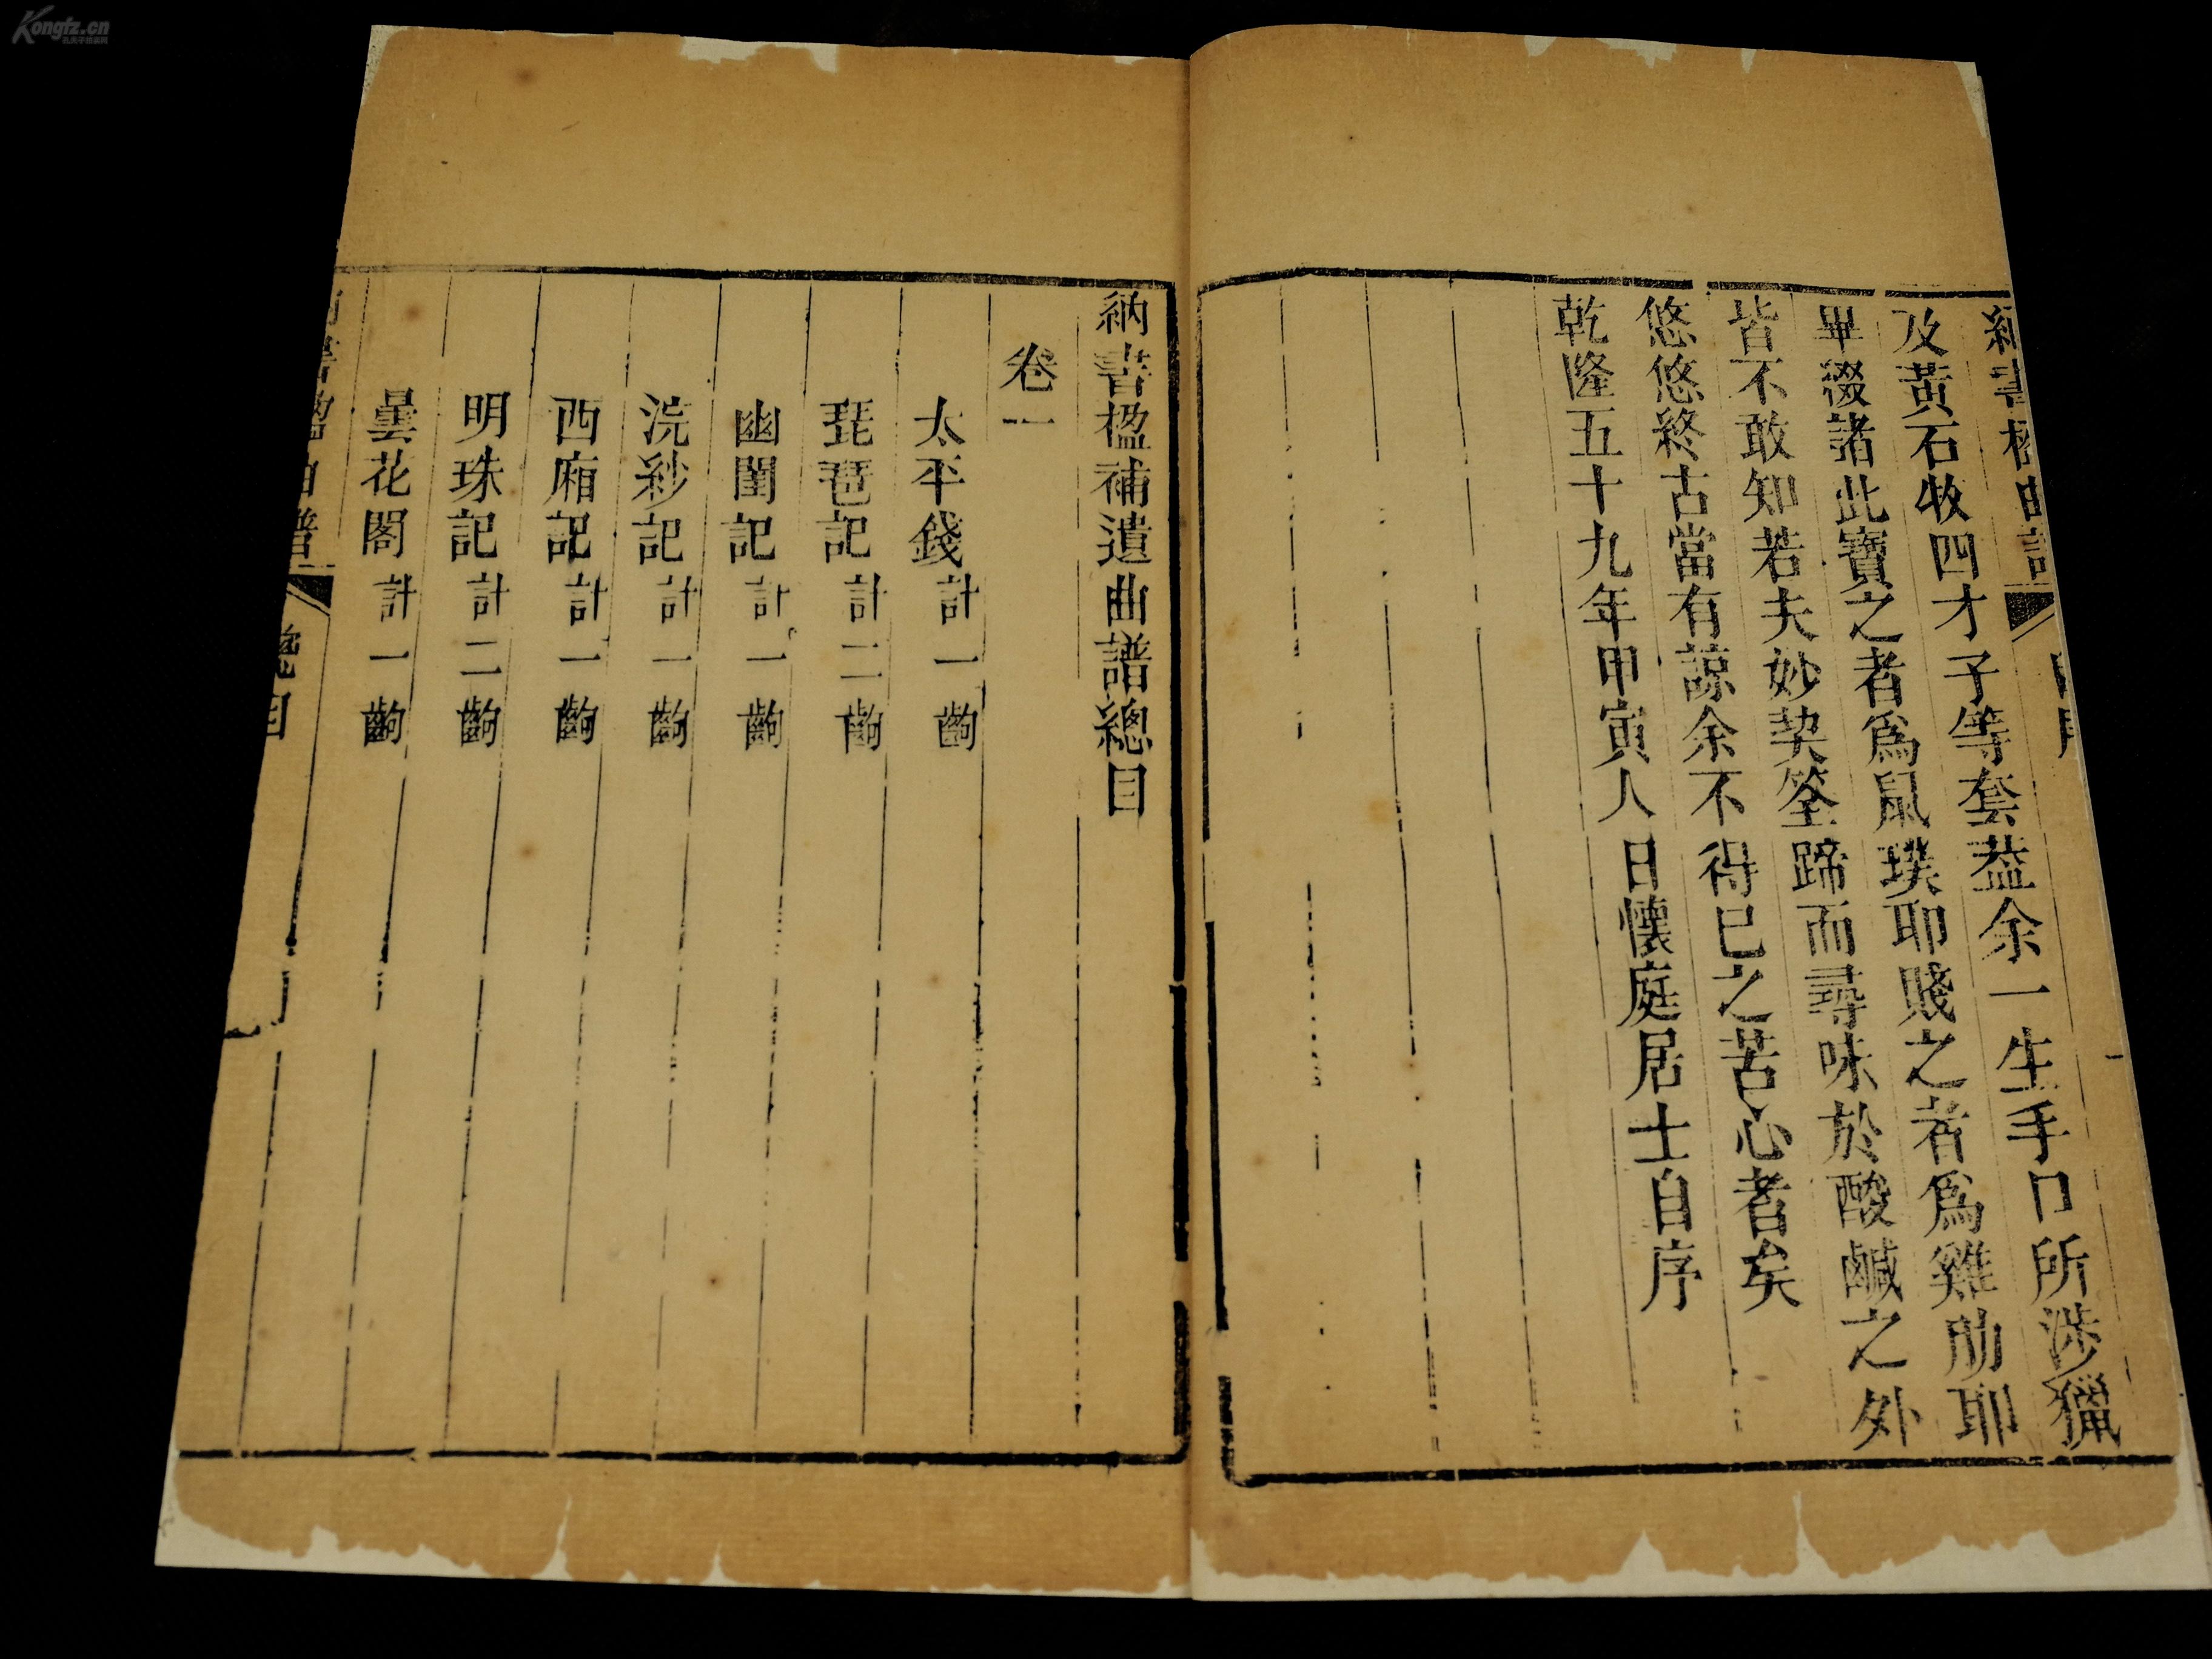 納書楹曲譜
及黃石牧四才子等套葢余一生手口所涉獵
畢綴諸此寶之者爲鼠璞耶賤之者爲雞肋耶
皆不敢知若夫妙契筌蹄而尋味於酸鹹之外
悠悠終古當有諒余不得已之苦心者矣
乾隆五十九年甲寅人日懷庭居士自序
納書楹補遺曲譜總目
卷一
太平錢計一齣
琵琶記計二齣
幽閨記計一齣
浣紗記計一齣
西廂記計一齣
明珠記計二齣
曇花閣計一齣
書楹曲譜
總目
Kongfz.cn